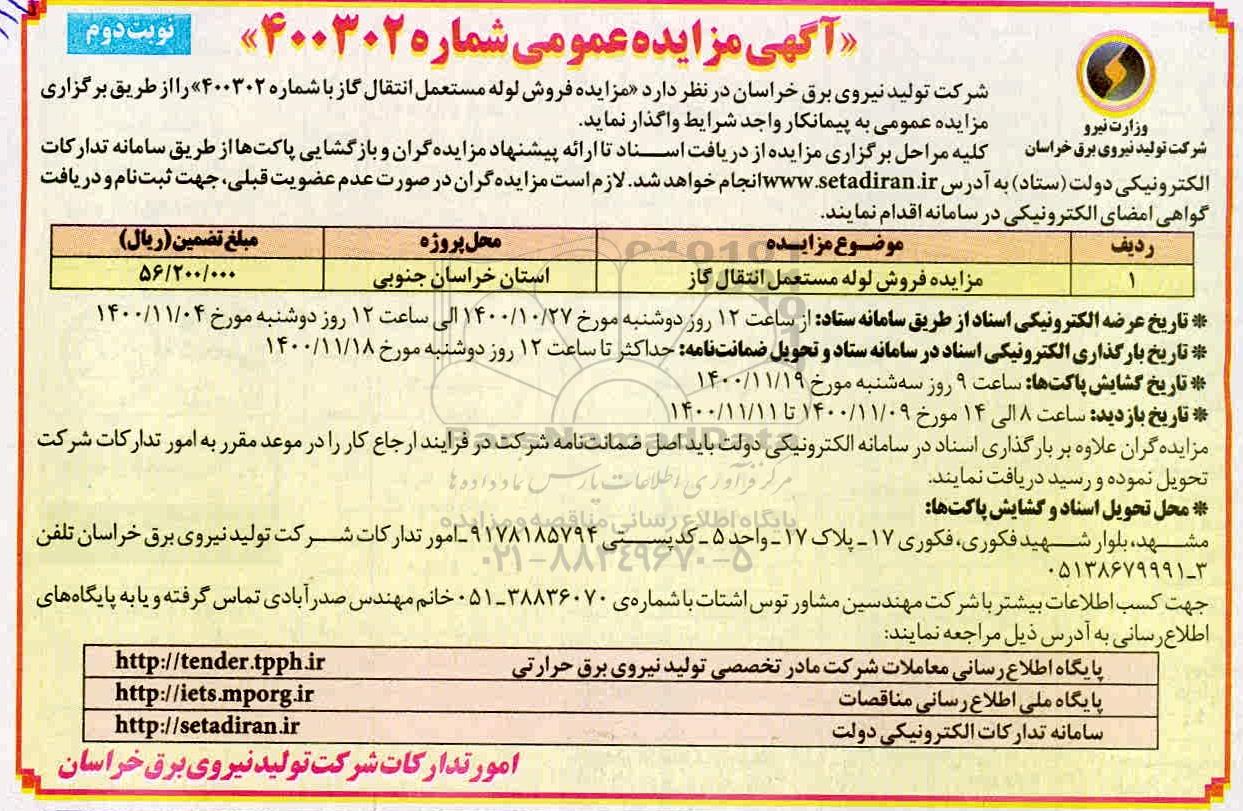 نوبت دوم
«آگهی مزایده عمومی شماره ۴۰۰۳۰۲»
وزارت نیرو
شرکت تولید نیروی برق خراسان
شرکت تولید نیروی برق خراسان در نظر دارد «مزایده فروش لوله مستعمل انتقال گاز با شماره ۴۰۰۳۰۲» را از طریق برگزاری
مزایده عمومی به پیمانکار واجد شرایط واگذار نماید.
کلیه مراحل برگزاری مزایده از دریافت اسناد تا ارائه پیشنهاد مزایده‌گران و بازگشایی پاکت‌ها از طریق سامانه تدارکات
الکترونیکی دولت (ستاد) به آدرس www.setadiran.ir انجام خواهد شد. لازم است مزایده‌گران در صورت عدم عضویت قبلی، جهت ثبت‌نام و دریافت
گواهی امضای الکترونیکی در سامانه اقدام نمایند.
ردیف موضوع مزایده محل پروژه مبلغ تضمین (ریال)
۱ مزایده فروش لوله مستعمل انتقال گاز استان خراسان جنوبی ۵۶/۲۰۰/۰۰۰
* تاریخ عرضه الکترونیکی اسناد از طریق سامانه ستاد: از ساعت ۱۲ روز دوشنبه مورخ ۱۴۰۰/۱۰/۲۷ الی ساعت ۱۲ روز دوشنبه مورخ ۱۴۰۰/۱۱/۰۴
* تاریخ بارگذاری الکترونیکی اسناد در سامانه ستاد و تحویل ضمانت‌نامه: حداکثر تا ساعت ۱۲ روز دوشنبه مورخ ۱۴۰۰/۱۱/۱۸
* تاریخ گشایش پاکت‌ها: ساعت ۹ روز سه‌شنبه مورخ ۱۴۰۰/۱۱/۱۹
* تاریخ بازدید: ساعت ۸ الی ۱۴ مورخ ۱۴۰۰/۱۱/۰۹ تا ۱۴۰۰/۱۱/۱۱
مزایده‌گران علاوه بر بارگذاری اسناد در سامانه الکترونیکی دولت باید اصل ضمانت‌نامه شرکت در فرآیند ارجاع کار را در موعد مقرر به امور تدارکات شرکت
تحویل نموده و رسید دریافت نمایند.
* محل تحویل اسناد و گشایش پاکت‌ها:
مشهد، بلوار شهید فکوری، فکوری ۱۷ ـ پلاک ۱۷ ـ واحد ۵ ـ کدپستی ۹۱۷۸۱۸۵۷۹۴ ـ امور تدارکات شرکت تولید نیروی برق خراسان تلفن
۳ـ۰۵۱۳۸۶۷۹۹۹۱
جهت کسب اطلاعات بیشتر با شرکت مهندسین مشاور توس اشتات با شماره‌ی ۳۸۸۳۶۰۷۰ـ۰۵۱ خانم مهندس صدرآبادی تماس گرفته و یا به پایگاه‌های
اطلاع‌رسانی به آدرس ذیل مراجعه نمایند:
پایگاه اطلاع‌رسانی معاملات شرکت مادر تخصصی تولید نیروی برق حرارتی http://tender.tpph.ir
پایگاه ملی اطلاع رسانی مناقصات http://iets.mporg.ir
سامانه تدارکات الکترونیکی دولت http://setadiran.ir
امور تدارکات شرکت تولید نیروی برق خراسان
ParsNamadData
مرکز فرآوری اطلاعات پارس نماد داده‌ها
پایگاه اطلاع رسانی مناقصه و مزایده
۰۲۱-۸۸۳۴۹۶۷۰-۵